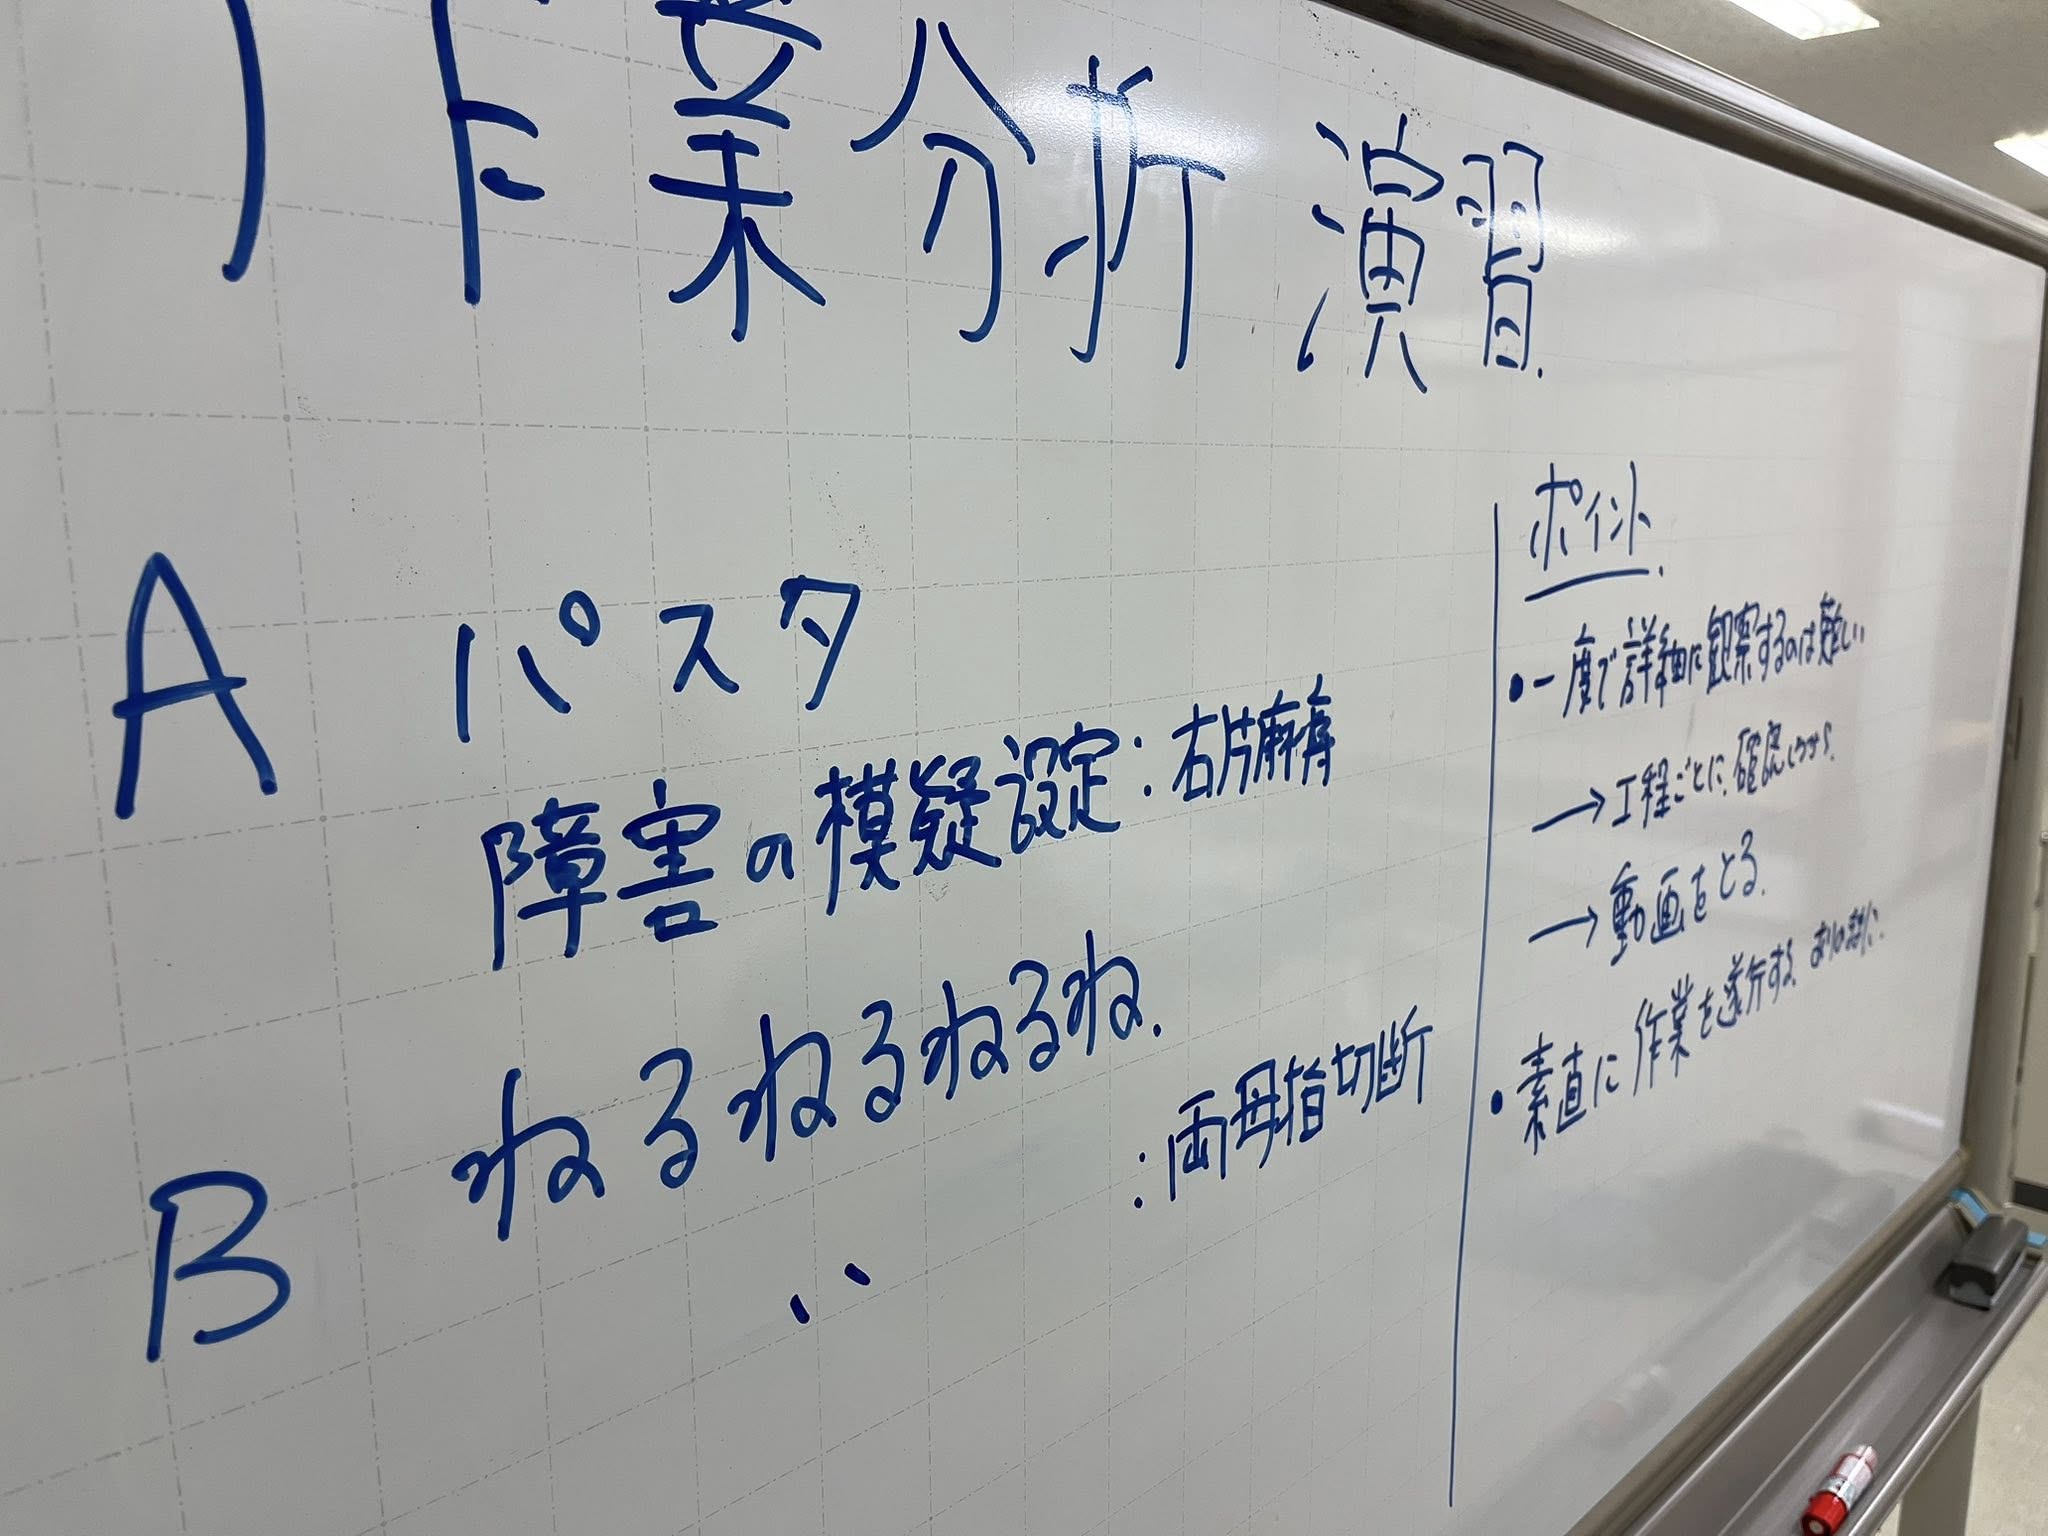 作業分析演習
A パスタ
障害の模擬設定:右片麻痺
B ねるねるねるね.
〃 :両母指切断
ポイント
・一度で詳細に観察するのは難しい
→工程ごとに確認しながら
→動画をとる.
・素直に作業を遂行する